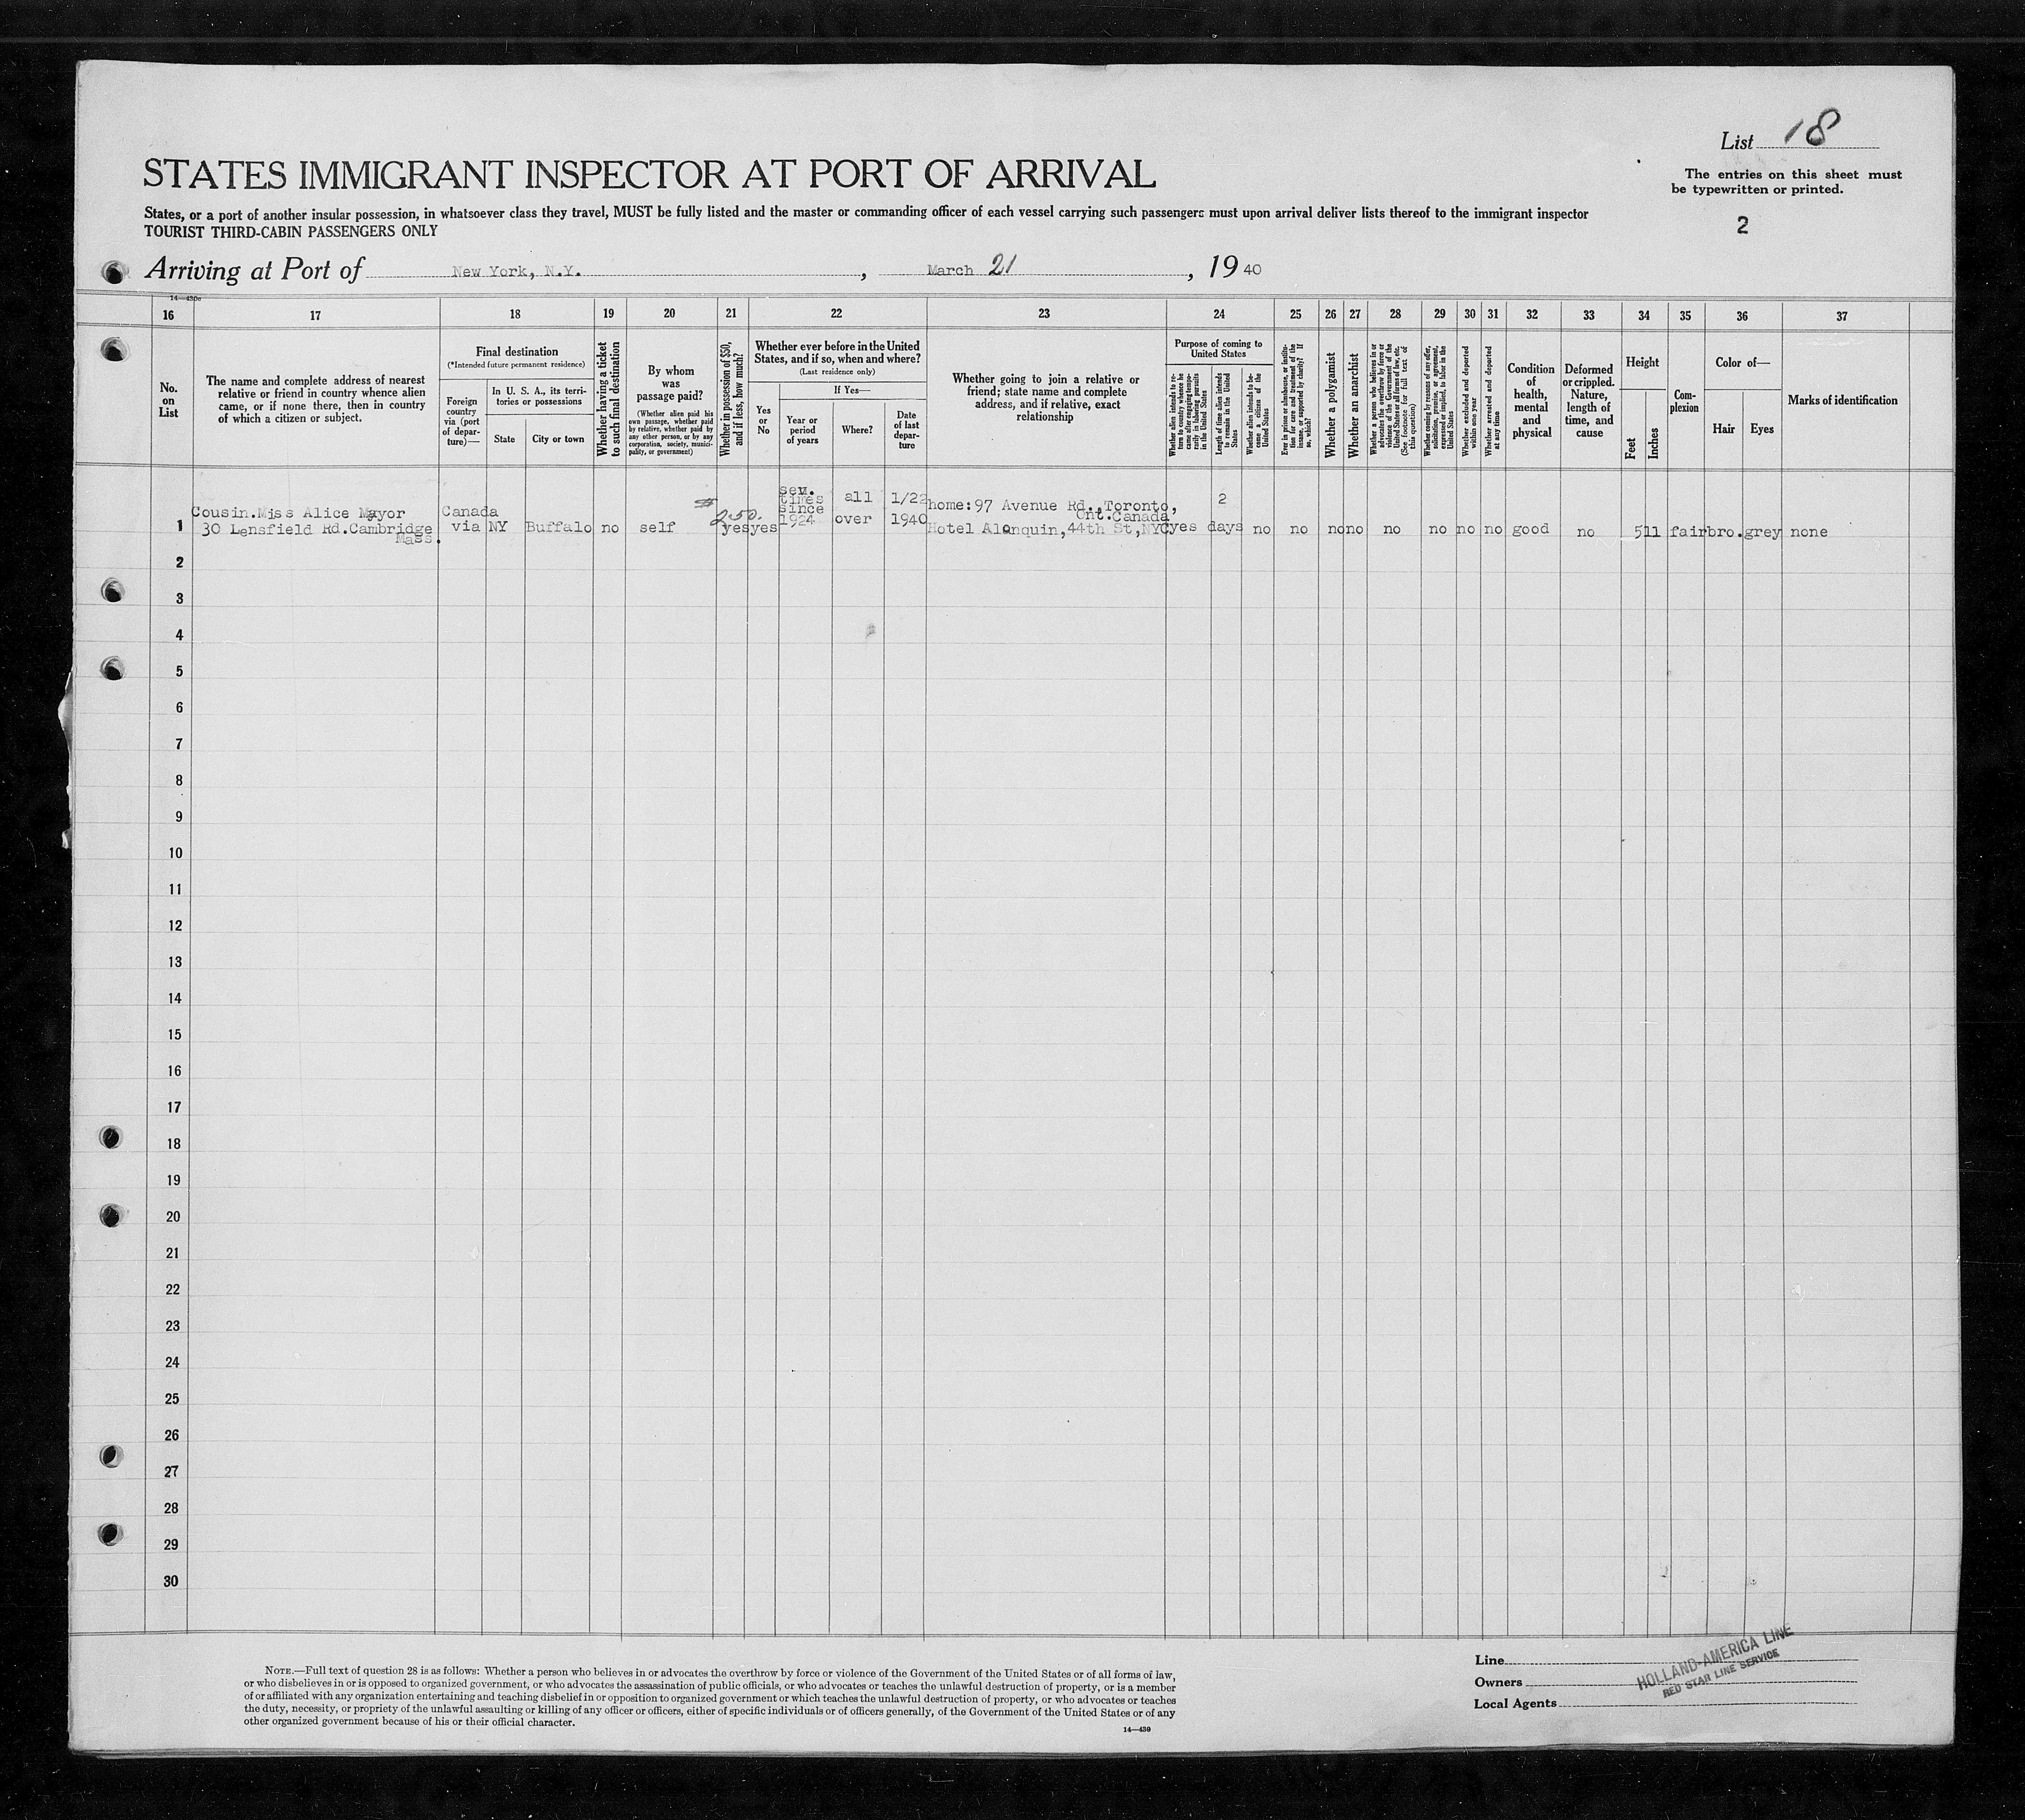 List 18
The entries on this sheet must
be typewritten or printed.
2
STATES IMMIGRANT INSPECTOR AT PORT OF ARRIVAL
States, or a port of another insular possession, in whatsoever class they travel, MUST be fully listed and the master or commanding officer of each vessel carrying such passengers must upon arrival deliver lists thereof to the immigrant inspector
TOURIST THIRD-CABIN PASSENGERS ONLY
Arriving at Port of New York, N.Y. , March 21 , 19 40
14—430c
16 17 18 19 20 21 22 23 24 25 26 27 28 29 30 31 32 33 34 35 36 37
No.
on
List
The name and complete address of nearest
relative or friend in country whence alien
came, or if none there, then in country
of which a citizen or subject.
Final destination
(*Intended future permanent residence)
Foreign
country
via (port
of depar-
ture)—
In U. S. A., its terri-
tories or possessions
State
City or town
Whether having a ticket
to such final destination
By whom
was
passage paid?
(Whether alien paid his
own passage, whether paid
by relative, whether paid by
any other person, or by any
corporation, society, munici-
pality, or government)
Whether in possession of $50,
and if less, how much?
Whether ever before in the United
States, and if so, when and where?
(Last residence only)
Yes
or
No
If Yes—
Year or
period
of years
Where?
Date
of last
depar-
ture
Whether going to join a relative or
friend; state name and complete
address, and if relative, exact
relationship
Purpose of coming to
United States
Whether alien intends to re-
turn to country whence he
came after engaging tempo-
rarily in laboring pursuits
in the United States
Length of time alien intends
to remain in the United
States
Whether alien intends to be-
come a citizen of the
United States
Ever in prison or almshouse, or institu-
tion for care and treatment of the
insane, or supported by charity? If
so, which?
Whether a polygamist
Whether an anarchist
Whether a person who believes in or
advocates the overthrow by force or
violence of the Government of the
United States or all forms of law, etc.
(See footnote for full text of
this question)
Whether coming by reasons of any offer,
solicitation, promise, or agreement,
expressed or implied, to labor in the
United States
Whether excluded and deported
within one year
Whether arrested and deported
at any time
Condition
of
health,
mental
and
physical
Deformed
or crippled.
Nature,
length of
time, and
cause
Height
Feet
Inches
Com-
plexion
Color of—
Hair
Eyes
Marks of identification
Cousin.Miss Alice Mayor
1 30 Lensfield Rd.Cambridge
Mass.
Canada
via NY Buffalo no self
$250.
yes yes
sev.
times
since
1924
all
over
1/22
1940
home:97 Avenue Rd.,Toronto,
Ont.Canada
Hotel Alonquin,44th St,NYC
yes
2
days no no no no no no no no good no 5 11 fair bro. grey none
2
3
4
5
6
7
8
9
10
11
12
13
14
15
16
17
18
19
20
21
22
23
24
25
26
27
28
29
30
NOTE.—Full text of question 28 is as follows: Whether a person who believes in or advocates the overthrow by force or violence of the Government of the United States or of all forms of law,
or who disbelieves in or is opposed to organized government, or who advocates the assassination of public officials, or who advocates or teaches the unlawful destruction of property, or is a member
of or affiliated with any organization entertaining and teaching disbelief in or opposition to organized government or which teaches the unlawful destruction of property, or who advocates or teaches
the duty, necessity, or propriety of the unlawful assaulting or killing of any officer or officers, either of specific individuals or of officers generally, of the Government of the United States or of any
other organized government because of his or their official character.
14—430
Line
Owners
Local Agents
HOLLAND-AMERICA LINE
RED STAR LINE SERVICE